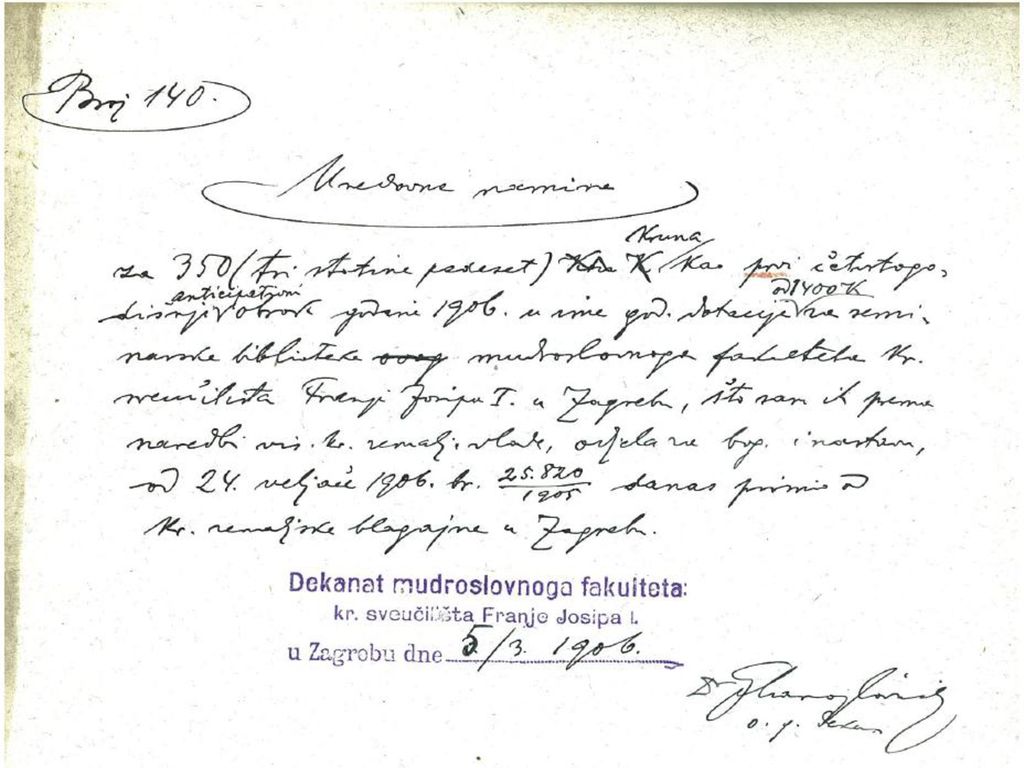 Broj 140.
Uredovna namira
Kruna
za 350 (tri stotine pedeset) K kao prvi četvrtogo-
anticipativni od 1400 K
dišnji obrok godine 1906. u ime god. dotacije za semi-
narske biblioteke ovog mudroslovnoga fakulteta kr.
sveučilišta Franje Josipa I. u Zagrebu, što sam ih prema
naredbi vis. kr. zemalj. vlade, odjela za bog. i nastavu,
od 24. veljače 1906. br. 25.820/1905 danas primio od
kr. zemaljske blagajne u Zagrebu.
Dekanat mudroslovnoga fakulteta:
kr. sveučilišta Franje Josipa I.
u Zagrebu dne 5/3. 1906.
Dr
o. g. dekan